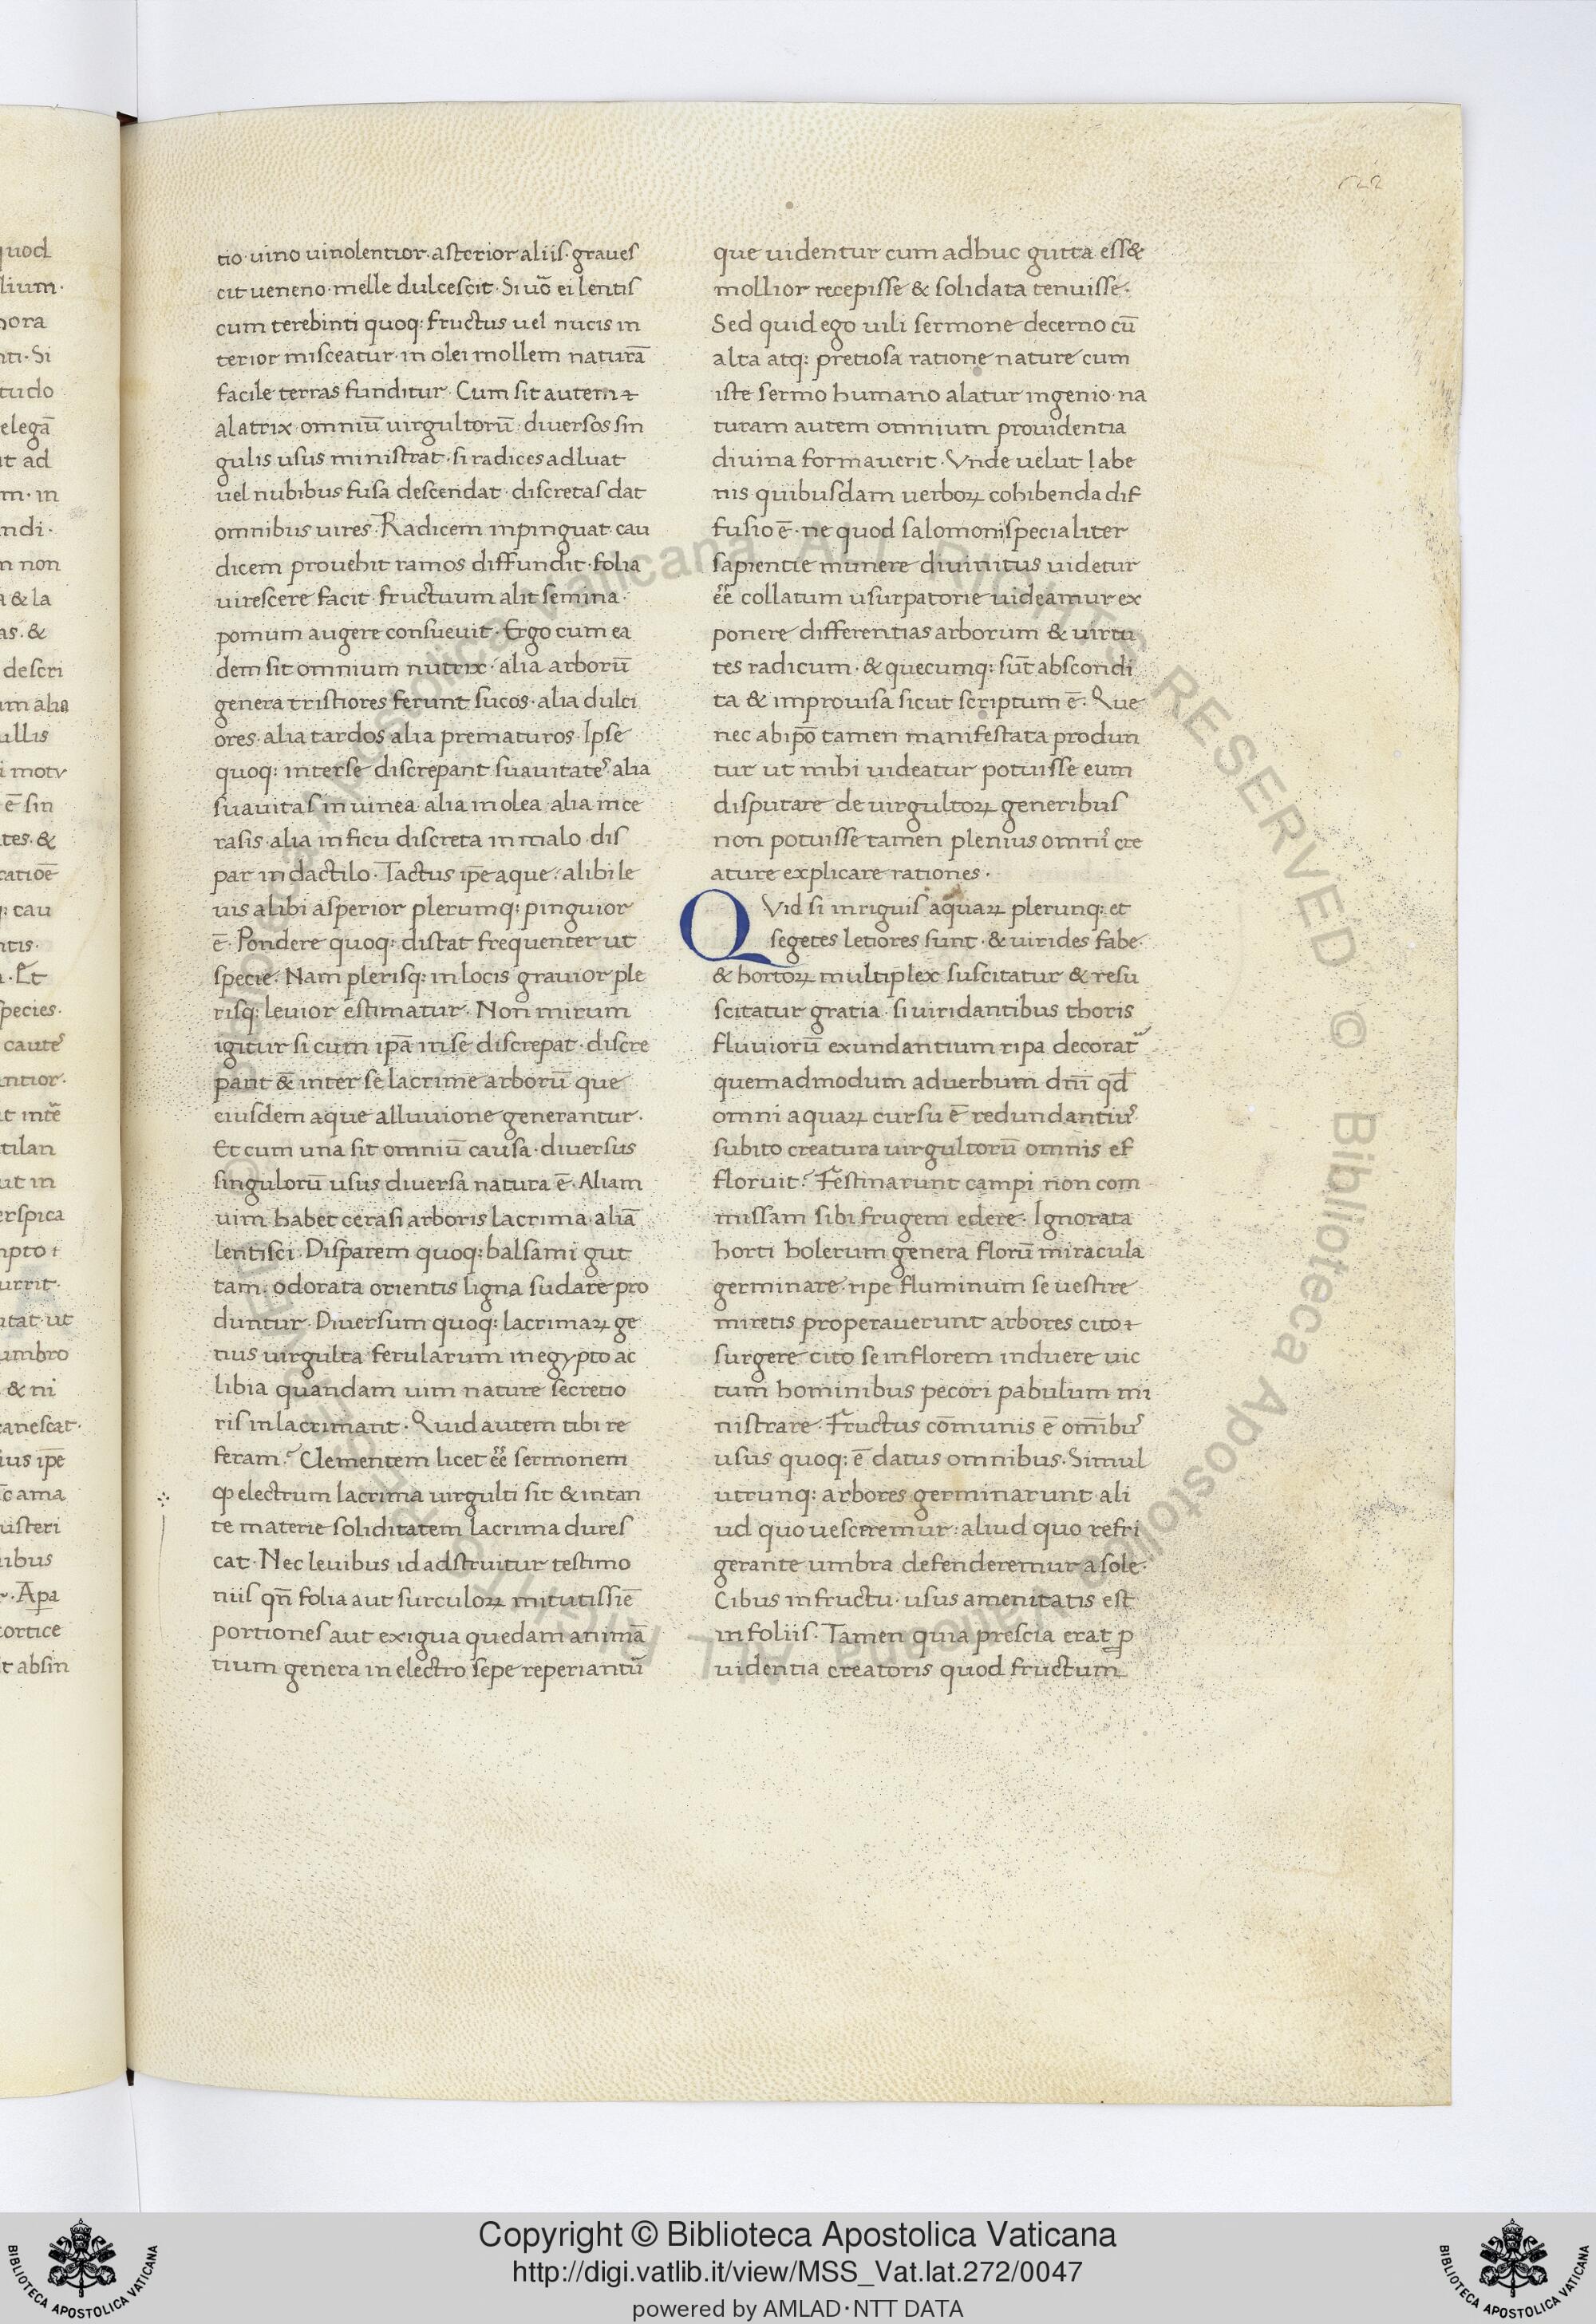 quod
lium·
hora
nti· Si
tudo
elegā
ut ad
m· in
ndi·
n non
a & la
as· &
descri
um alia
ullis
i motv
ē sin
tes· &
catioē
q: cau
ntis·
· Et
species·
caute
antior·
tilan
ut in
erspica
mpto
urrit·
utat· ut
umbro
& ni
canescat·
ius ip̄e
c ama
usteri
ibus
r· Apa
cortice
t absin
tio· uino uinolentior· asterior aliis· graues
cit ueneno· melle dulcescit· Si uo᷎ ei lentis
cum terebinti quoq: fructus uel nucis in
terior misceatur· in olei mollem naturā
facile terras funditur· Cum sit autem
alatrix· omniū uirgultorū· diuersos sin
gulis usus ministrat· si radices adluat
uel nubibus fusa descendat· discretas dat
omnibus uires· Radicem inpinguat· cau
dicem prouehit ramos diffundit· folia
uirescere facit· fructuum alit semina·
pomum augere consueuit· Ergo cum ea
dem sit omnium nutrix· alia arborū
genera tristiores ferunt sucos· alia dulci
ores· alia tardos alia prematuros· Ipse
quoq: inter se discrepant suauitates· alia
suauitas in uinea· alia in olea· alia in ce
rasis· alia in ficu discreta in malo· dis
par in dactilo· Tactus ip̄e aque· alibi le
uis alibi asperior plerumq: pinguior
ē· Pondere quoq: distat frequenter ut
specie· Nam plerisq: in locis grauior ple
risq: leuior estimatur· Non mirum
igitur si cum ip̄a in se discrepat· discre
pant &̄ inter se lacrime arborū que
eiusdem aque alluuione generantur·
Et cum una sit omniū causa· diuersus
singulorū usus diuersa natura ē· Aliam
uim habet cerasi arboris lacrima· aliā
lentisci· Disparem quoq: balsami gut
tam· odorata orientis ligna sudare pro
duntur· Diuersum quoq: lacrimaꝝ ge
nus uirgulta ferularum in egypto ac
libia quandam uim nature secretio
ris inlacrimant· Quid autem tibi re
feram· Clementem licet ēē sermonem
ꝙ electrum lacrima uirgulti sit & in tan
te materie soliditatem lacrima dures
cat· Nec leuibus id adstruitur testimo
niis qn̄ folia aut surculoꝝ mitutissiē
portiones aut exigua quedam animā
tium genera in electro sepe reperiantū
que uidentur cum adhuc gutta ess&
mollior recepisse & solidata tenuisse·
Sed quid ego uili sermone decerno cū
alta atq: pretiosa ratione nature cum
iste sermo humano alatur ingenio· na
turam autem omnium prouidentia
diuina formauerit· Vnde uelut labe
nis quibusdam uerboꝝ cohibenda dif
fusio ē· ne quod salomoni specialiter
sapientie munere diuinitus uidetur
ēē collatum usurpatorie uideamur ex
ponere differentias arborum & uirtu
tes radicum· & quecumq: sūt abscondi
ta & improuisa sicut scriptum ē· Que
nec ab ip̄o tamen manifestata produn
tur ut mihi uideatur potuisse eum
disputare de uirgultoꝝ generibus
non potuisse tamen plenius omnī cre
ature explicare rationes·
QVid si in riguis aquaꝝ plerunq: et
segetes letiores sunt· & uirides fabe·
& hortoꝝ multiplex suscitatur & resu
scitatur gratia· si uiridantibus thoris
fluuiorū exundantium ripa decorat
quemadmodum ad uerbum dn̄i qd̄
omni aquaꝝ cursu ē redundantiu᷒
subito creatura uirgultorū omnis ef
floruit· Festinarunt campi non com
missam sibi frugem edere· Ignorata
horti holerum genera florū miracula
germinare· ripe fluminum se uestire
miretis properauerunt arbores cito
surgere cito se in florem induere uic
tum hominibus pecori pabulum mi
nistrare· Fructus cōmunis ē om̄ibus
usus quoq: ē datus omnibus· Simul
utrunq: arbores germinarunt ali
ud quo uesceremur· aliud quo refri
gerante umbra defenderemur a sole·
Cibus in fructu· usus amenitatis est
in foliis· Tamen quia prescia erat ꝓ
uidentia creatoris quod fructum
Copyright © Biblioteca Apostolica Vaticana
http://digi.vatlib.it/view/MSS_Vat.lat.272/0047
powered by AMLAD·NTT DATA
BIBLIOTECA APOSTOLICA VATICANA
BIBLIOTECA APOSTOLICA VATICANA